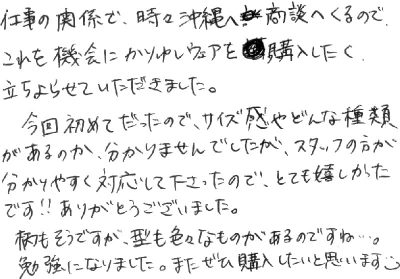 仕事の関係で、時々沖縄へ商談へくるので、
これを機会にかりゆしウェアを購入したく
立ちよらせていただきました。
今回初めてだったので、サイズ感やどんな種類
があるのか、分かりませんでしたが、スタッフの方が
分かりやすく対応して下さったので、とても嬉しかった
です!!ありがとうございました。
柄もそうですが、型も色々なものがあるのですね…。
勉強になりました。またぜひ購入したいと思います